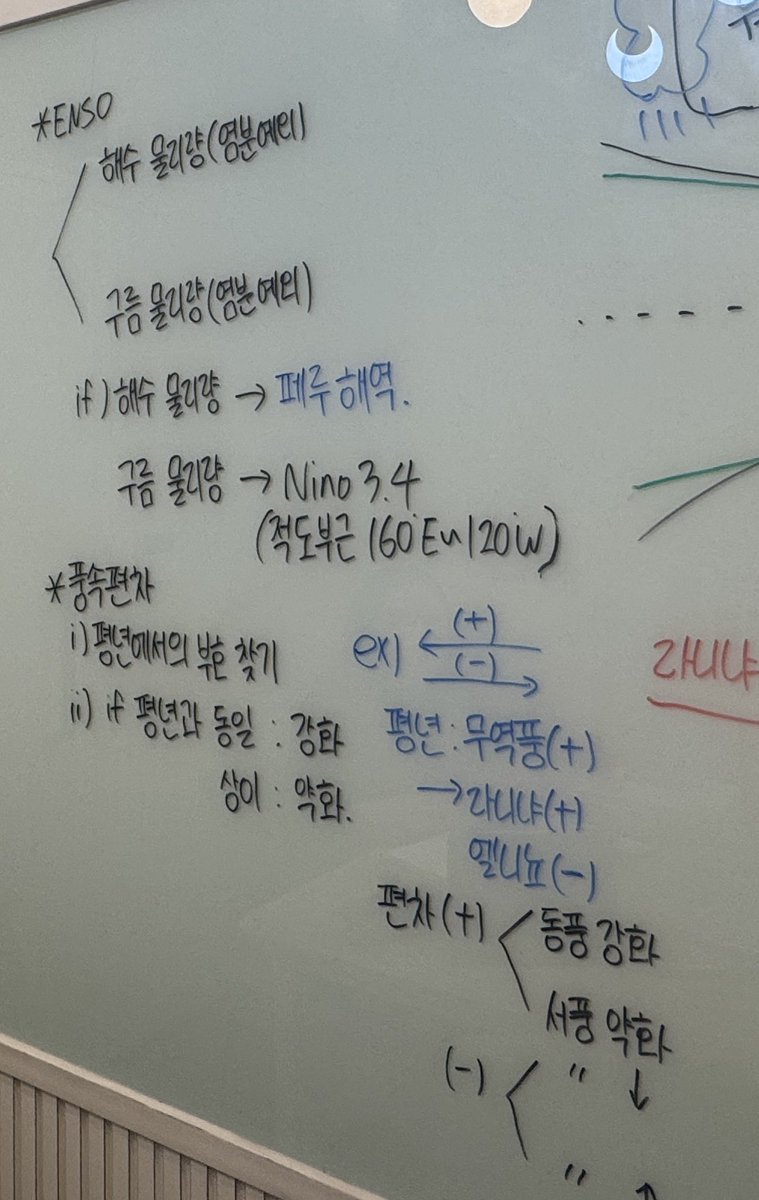 *ENSO
해수 물리량(염분예외)
구름 물리량(염분예외)
if) 해수 물리량 → 페루 해역.
구름 물리량 → Nino 3.4
(적도부근 160°E~120°W)
*풍속편차
i) 평년에서의 부호 찾기
ii) if 평년과 동일 : 강화
상이 : 약화.
ex) ← (+)
(-) →
평년 : 무역풍(+)
→ 라니냐(+)
엘니뇨(-)
편차(+) < 동풍 강화
서풍 약화
(-) < 〃 ↓
〃 ↑
라니냐